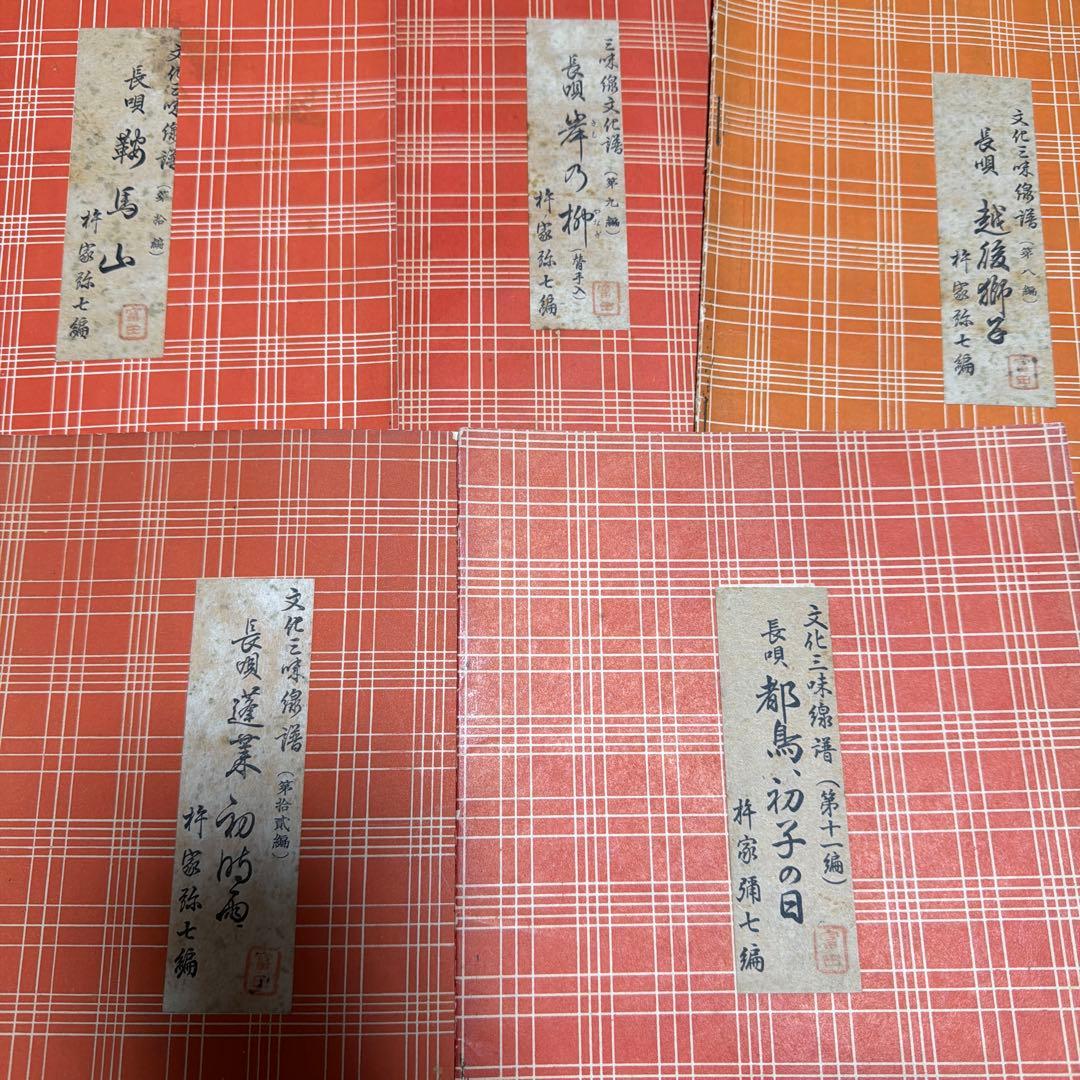 文化三味線譜(第拾編)
長唄 鞍馬山
杵家弥七編
三味線文化譜(第九編)
長唄 岸乃柳(替手入)
きし
やなぎ
杵家弥七編
文化三味線譜(第八編)
長唄 越後獅子
杵家弥七編
文化三味線譜(第拾貳編)
長唄 蓬莱 初時雨
杵家弥七編
文化三味線譜(第十一編)
長唄 都鳥、初子の日
杵家彌七編